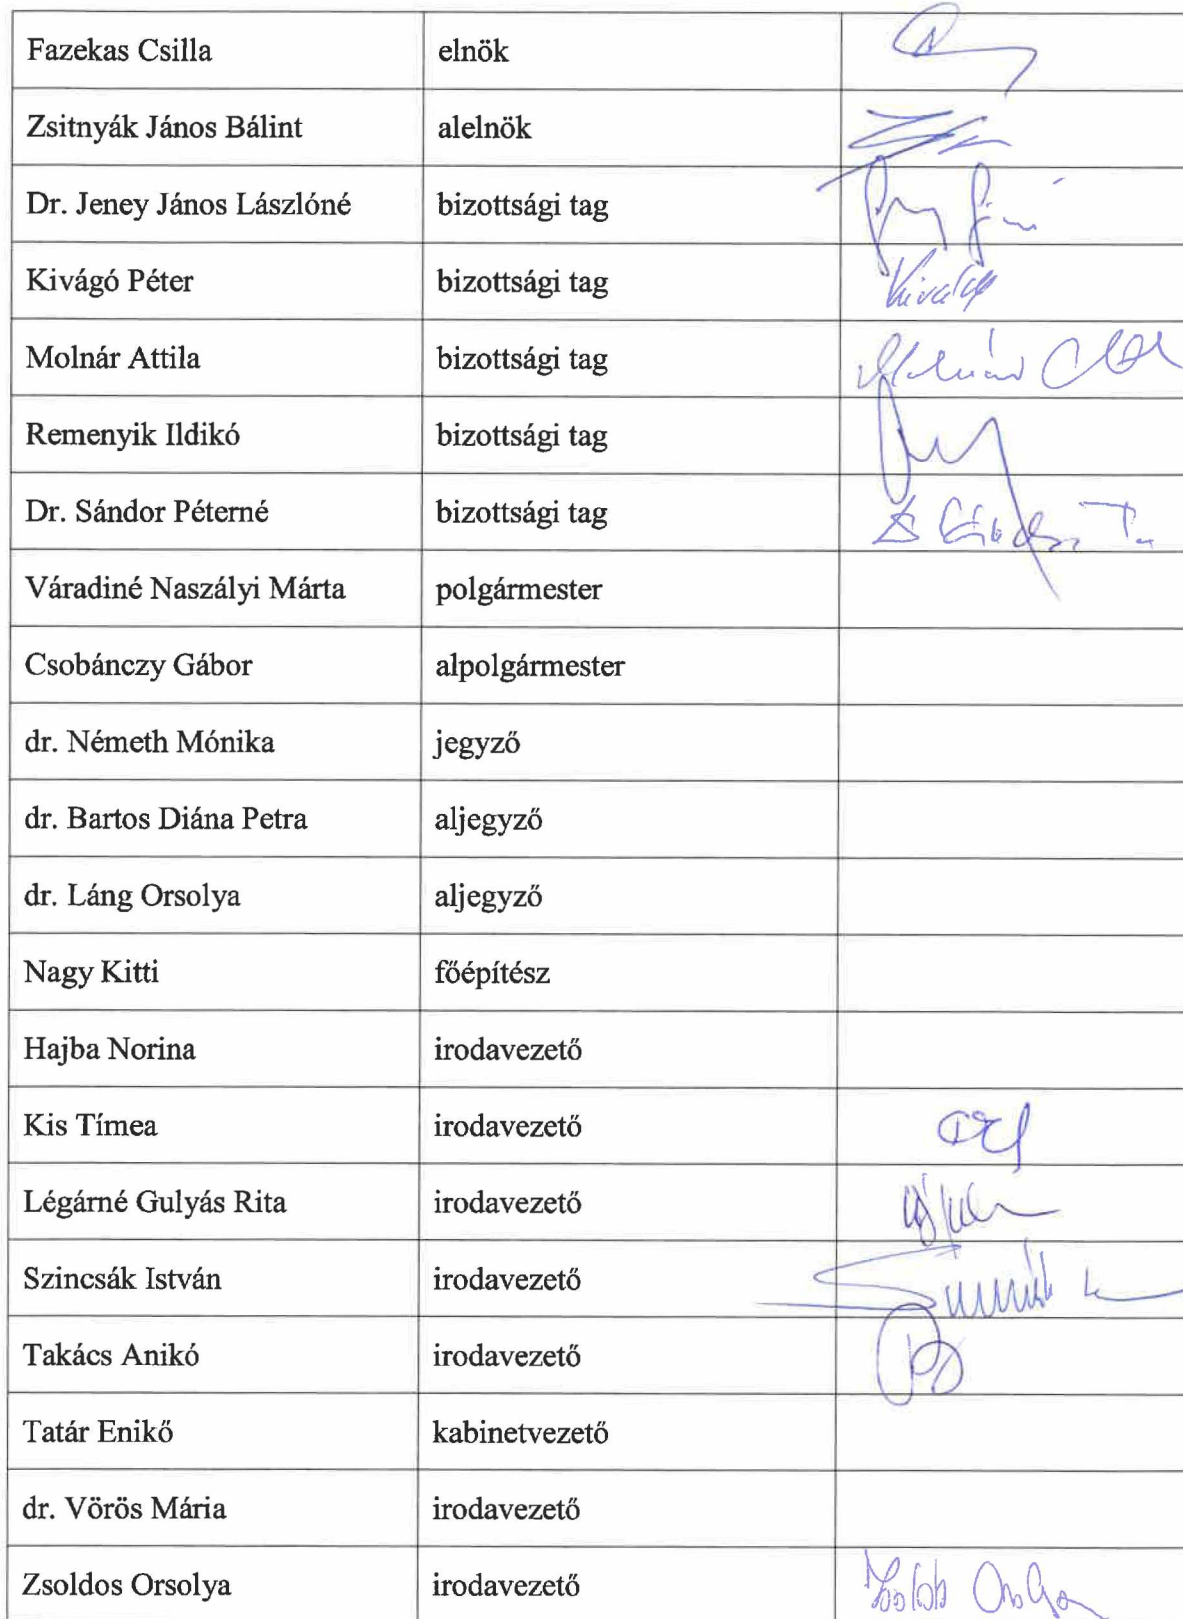 Fazekas Csilla elnök
Zsitnyák János Bálint alelnök
Dr. Jeney János Lászlóné bizottsági tag
Kivágó Péter bizottsági tag
Molnár Attila bizottsági tag
Remenyik Ildikó bizottsági tag
Dr. Sándor Péterné bizottsági tag
Váradiné Naszályi Márta polgármester
Csobánczy Gábor alpolgármester
dr. Németh Mónika jegyző
dr. Bartos Diána Petra aljegyző
dr. Láng Orsolya aljegyző
Nagy Kitti főépítész
Hajba Norina irodavezető
Kis Tímea irodavezető
Légárné Gulyás Rita irodavezető
Szincsák István irodavezető
Takács Anikó irodavezető
Tatár Enikő kabinetvezető
dr. Vörös Mária irodavezető
Zsoldos Orsolya irodavezető